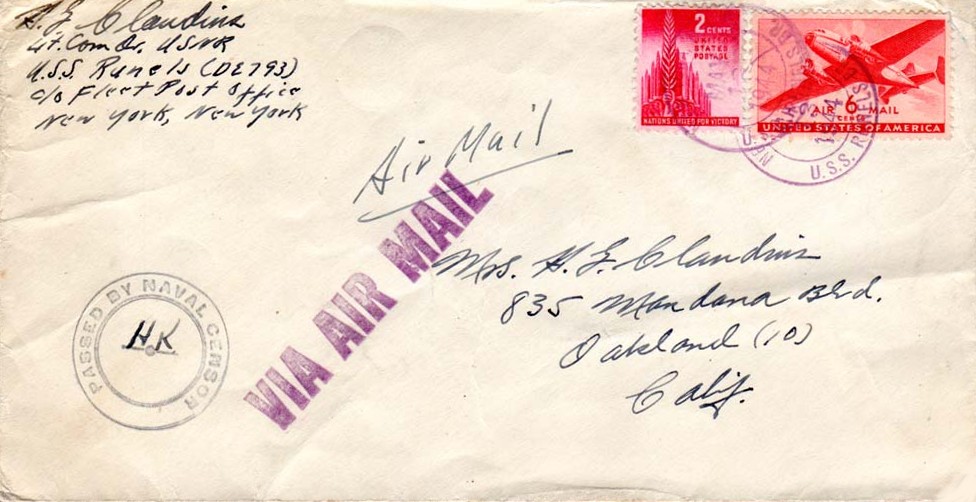 H. F. Claudius
Lt. Comdr. USNR
U.S.S. Runels (DE793)
c/o Fleet Post Office
New York, New York
2 CENTS
UNITED
STATES
POSTAGE
NATIONS UNITED FOR VICTORY
AIR 6 MAIL
CENTS
UNITED STATES OF AMERICA
U.S.S.
Air Mail
VIA AIR MAIL
Mrs. H. F. Claudius
835 Mandana Blvd.
Oakland (10)
Calif.
PASSED BY NAVAL CENSOR
HK